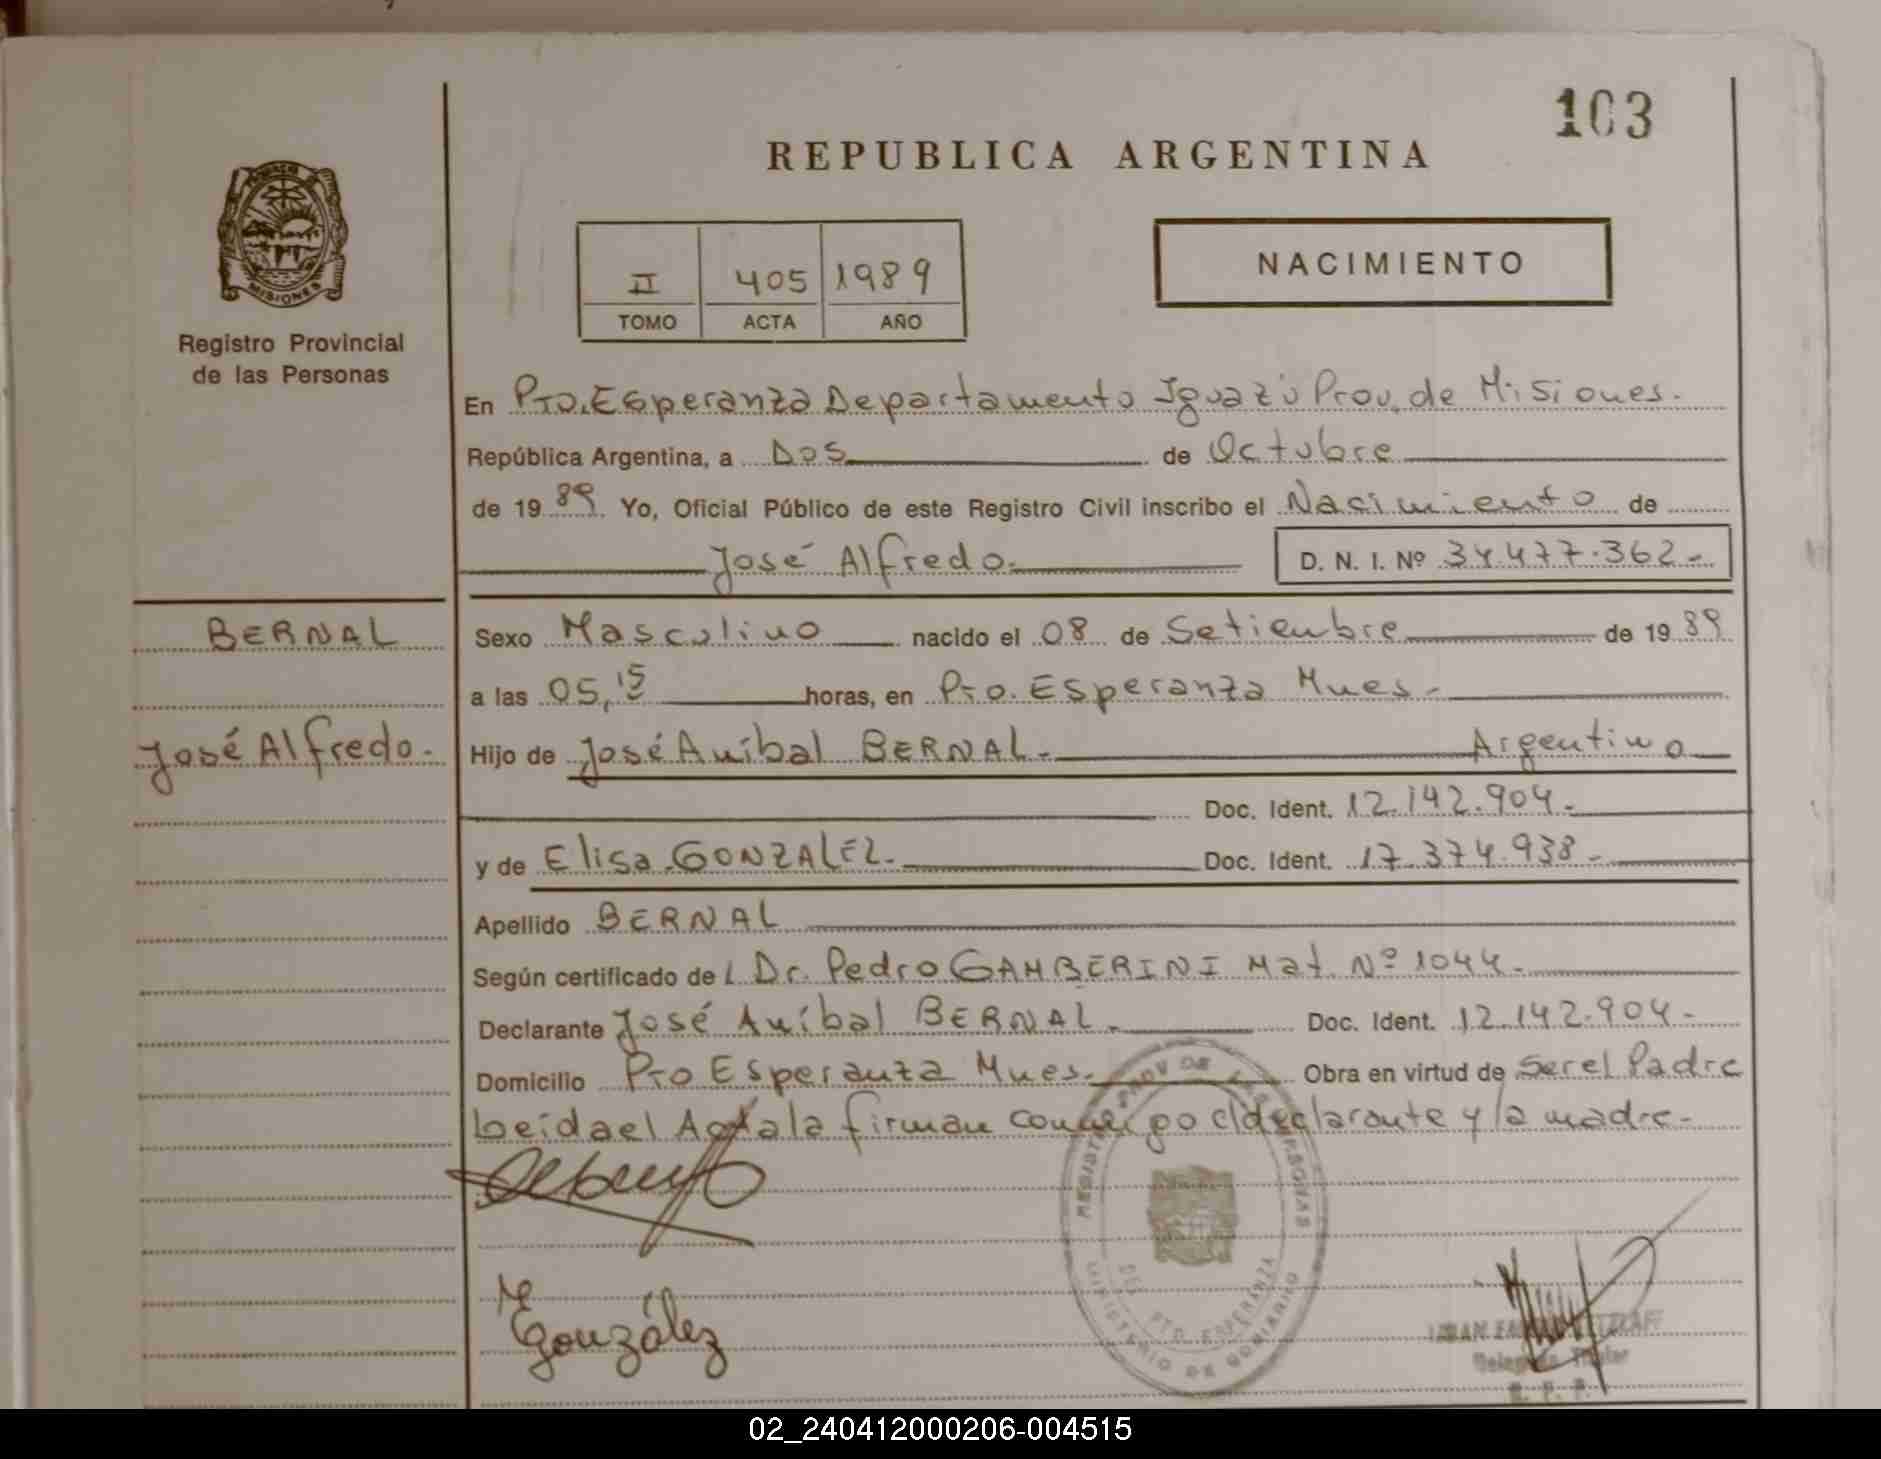 103
REPUBLICA ARGENTINA
MISIONES
Registro Provincial
de las Personas
II 405 1989
TOMO ACTA AÑO
NACIMIENTO
En Pto. Esperanza Departamento Iguazú Prov. de Misiones.
República Argentina, a Dos de Octubre
de 1989 Yo, Oficial Público de este Registro Civil inscribo el Nacimiento de
José Alfredo. D. N. I. Nº 34.477.362-
BERNAL
José Alfredo.
Sexo Masculino nacido el 08 de Setiembre de 1989
a las 05,15 horas, en Pto. Esperanza Mnes.
Hijo de José Aníbal BERNAL. Argentino
Doc. Ident. 12.142.904.
y de Elisa GONZALEZ. Doc. Ident. 17.374.938-
Apellido BERNAL
Según certificado del Dr. Pedro GAMBERINI Mat. Nº 1044.
Declarante José Aníbal BERNAL. Doc. Ident. 12.142.904-
Domicilio Pto Esperanza Mnes. Obra en virtud de ser el Padre
Leída el Acta la firman conmigo el declarante y la madre-
González
DEL. PTO. ESPERANZA
MINISTERIO DE GOBIERNO
Delegado Titular
02_240412000206-004515